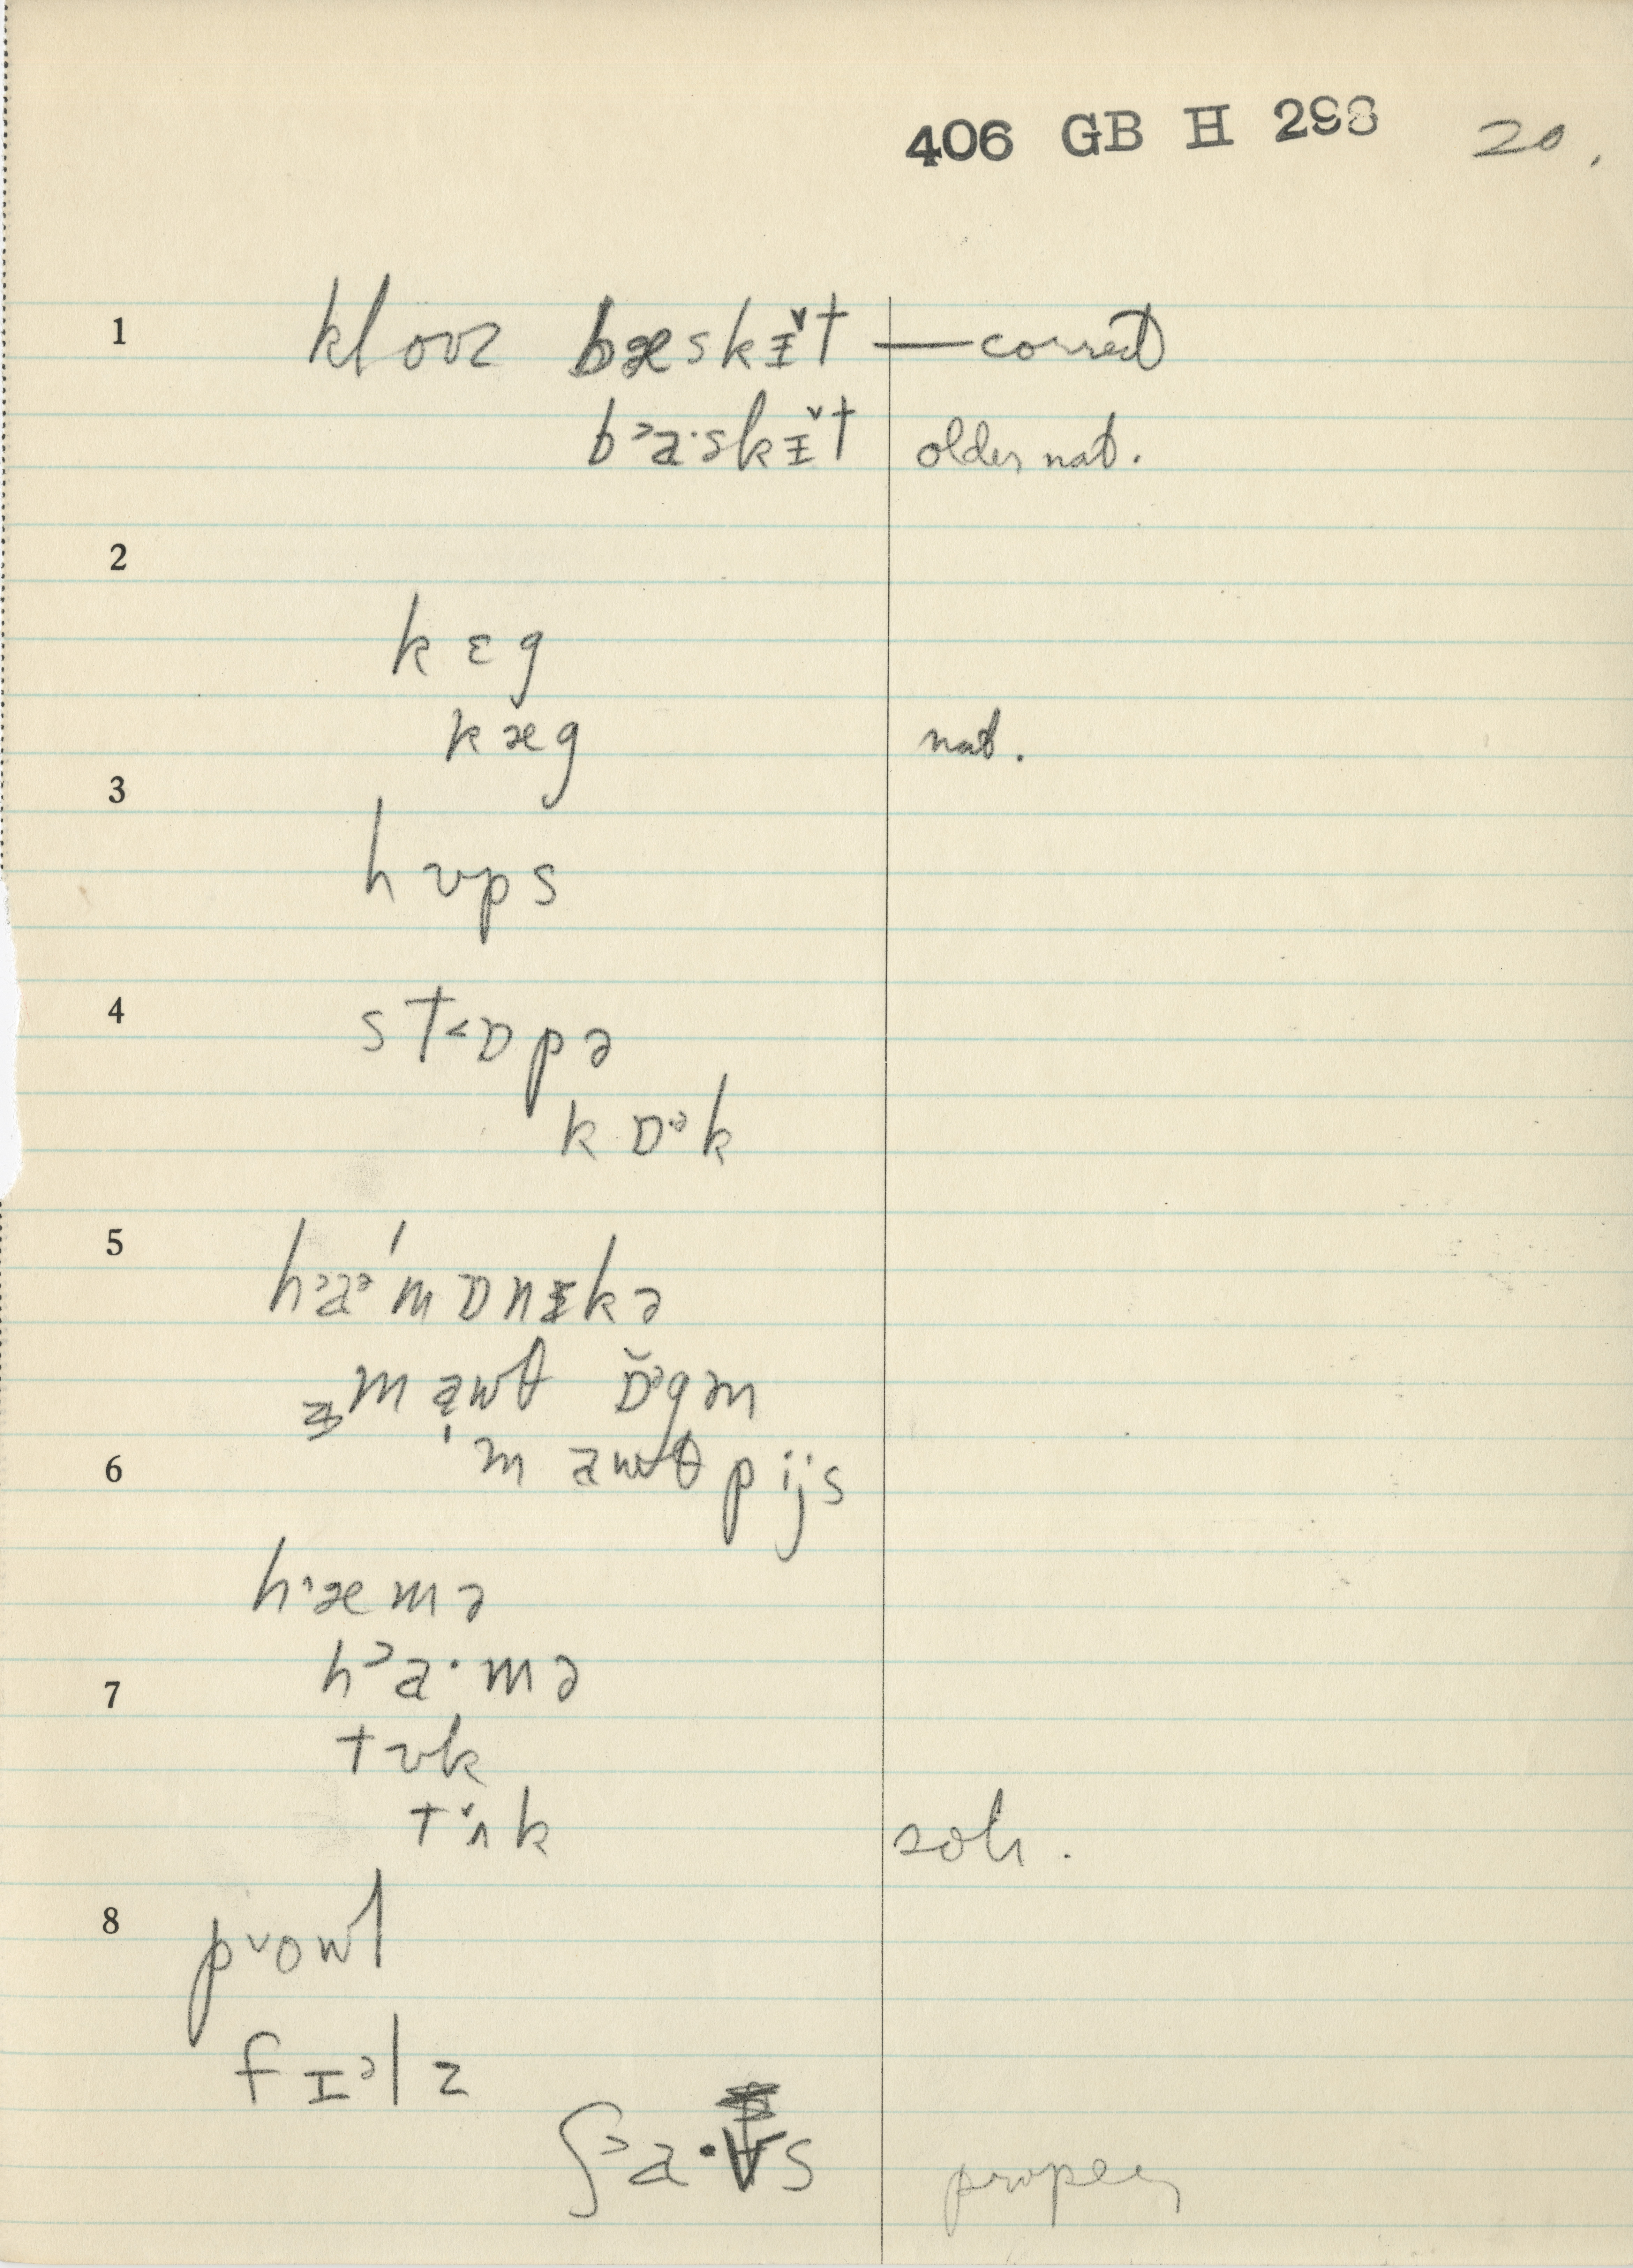 406 GB H 298 20.
1 kloʊz bæskɪ̌t — correct
b˃a·skɪ̌t older nat.
2
kɛg
kæg nat.
3
hʊps
4 st˂ɒpə
kɒᵊk
5
h˃aᵊˈmɒnɪkə
mawθ ɒ̆ᵊgən
6 ˈmawθpijs
h˄æmə
h˃a·mə
7
tʊk
tʌ̌k sol.
8
p˅owl
fɪᵊlz
ʃ˃a· s proper